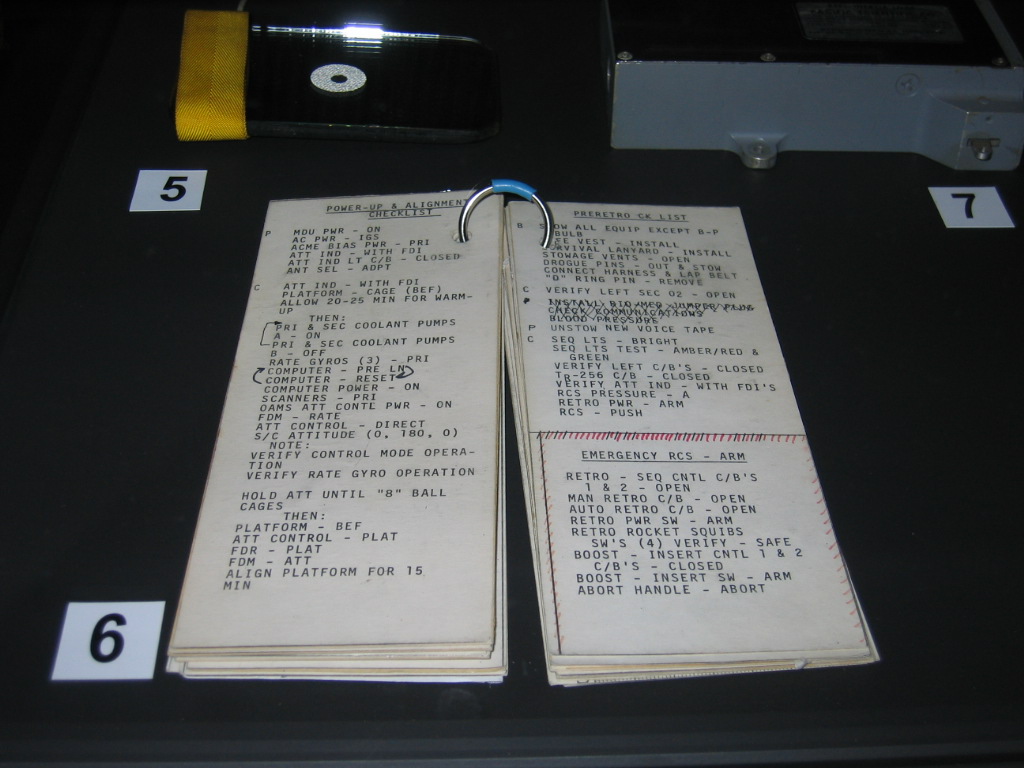 5
7
6
POWER-UP & ALIGNMENT
CHECKLIST
P MDU PWR - ON
AC PWR - IGS
ACME BIAS PWR - PRI
ATT IND - WITH FDI
ATT IND LT C/B - CLOSED
ANT SEL - ADPT
C ATT IND - WITH FDI
PLATFORM - CAGE (BEF)
ALLOW 20-25 MIN FOR WARM-
UP
THEN:
PRI & SEC COOLANT PUMPS
A - ON
PRI & SEC COOLANT PUMPS
B - OFF
RATE GYROS (3) - PRI
COMPUTER - PRE LN
COMPUTER - RESET
COMPUTER POWER - ON
SCANNERS - PRI
OAMS ATT CONTL PWR - ON
FDM - RATE
ATT CONTROL - DIRECT
S/C ATTITUDE (0, 180, 0)
NOTE:
VERIFY CONTROL MODE OPERA-
TION
VERIFY RATE GYRO OPERATION
HOLD ATT UNTIL "8" BALL
CAGES
THEN:
PLATFORM - BEF
ATT CONTROL - PLAT
FDR - PLAT
FDM - ATT
ALIGN PLATFORM FOR 15
MIN
PRERETRO CK LIST
B STOW ALL EQUIP EXCEPT B-P
BULB
VEST - INSTALL
SURVIVAL LANYARD - INSTALL
STOWAGE VENTS - OPEN
DROGUE PINS - OUT & STOW
CONNECT HARNESS & LAP BELT
"D" RING PIN - REMOVE
C VERIFY LEFT SEC O2 - OPEN
INSTALL BIO-MED JUMPER PLUG
CHECK COMMUNICATIONS
BLOOD PRESSURE
P UNSTOW NEW VOICE TAPE
C SEQ LTS - BRIGHT
SEQ LTS TEST - AMBER/RED &
GREEN
VERIFY LEFT C/B'S - CLOSED
TR-256 C/B - CLOSED
VERIFY ATT IND - WITH FDI'S
RCS PRESSURE - A
RETRO PWR - ARM
RCS - PUSH
EMERGENCY RCS - ARM
RETRO - SEQ CNTL C/B'S
1 & 2 - OPEN
MAN RETRO C/B - OPEN
AUTO RETRO C/B - OPEN
RETRO PWR SW - ARM
RETRO ROCKET SQUIBS
SW'S (4) VERIFY - SAFE
BOOST - INSERT CNTL 1 & 2
C/B'S - CLOSED
BOOST - INSERT SW - ARM
ABORT HANDLE - ABORT